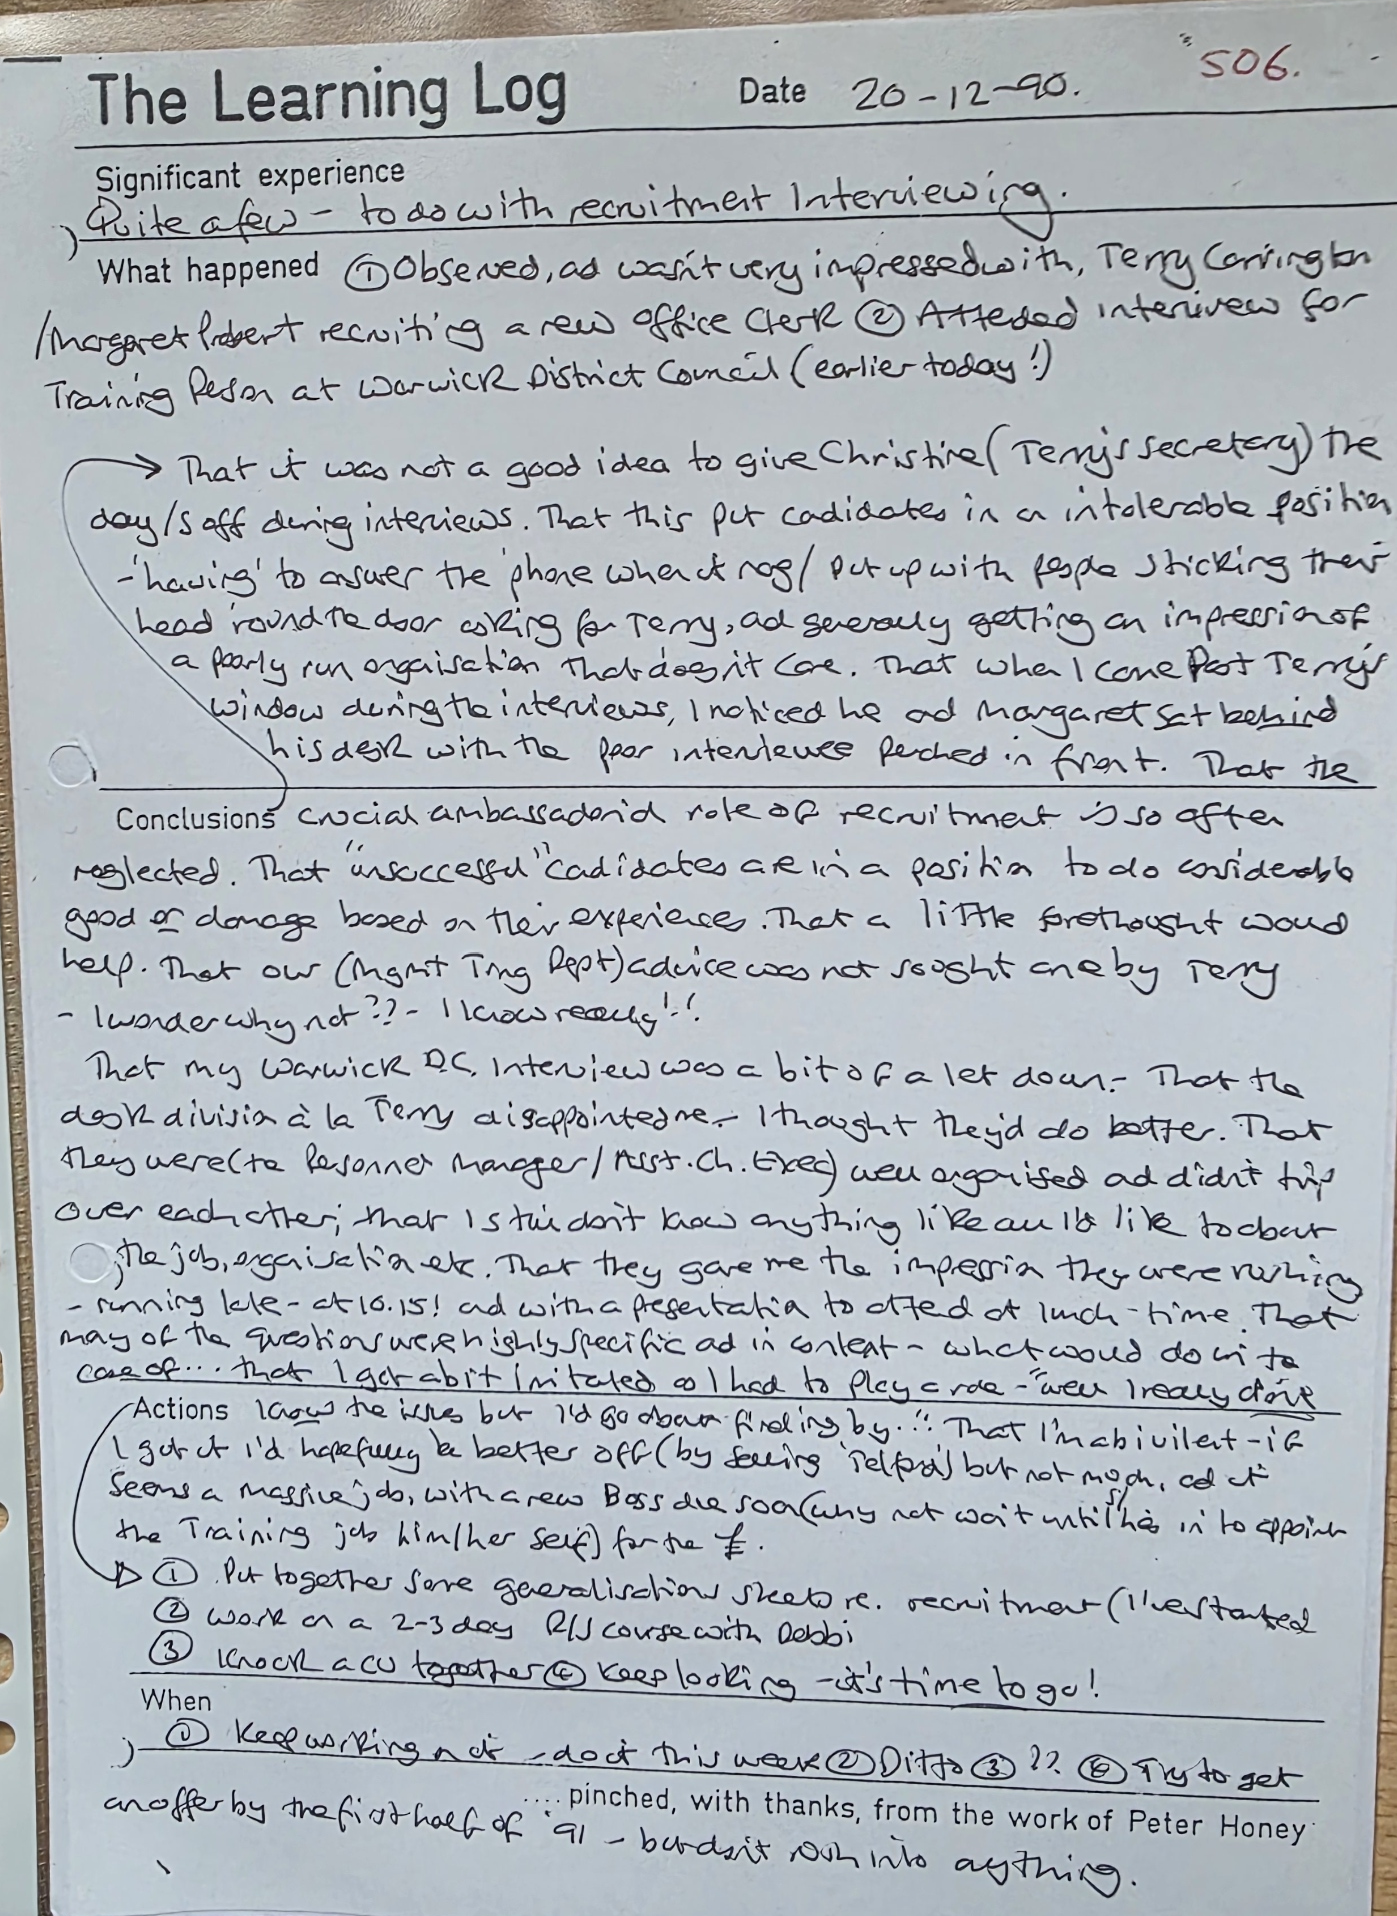 The Learning Log Date 20-12-90. 506.
Significant experience
Quite a few - to do with recruitment Interviewing.
What happened ① Observed, ad wasn't very impressed with, Terry Carrington
/Margaret Probert recruiting a new office Clerk ② Atteded interivew for
Training Person at Warwick District Council (earlier today!)
→ That it was not a good idea to give Christine (Terry's secretary) the
day/s off during interviews. That this put cadidates in an intolerable position
- 'having' to answer the 'phone when it rang / put up with people sticking their
head 'round the door asking for Terry, ad generally getting an impression of
a poorly run organisation that doesn't care. That when I came past Terry's
window during the interviews, I noticed he ad Margaret sat behind
his desk with the poor interviewee perched in front. That the
Conclusions crucial ambassadorial role of recruitment is so often
neglected. That "unsuccessful" cadidates are in a position to do considerable
good or damage based on their experiences. That a little forethought would
help. That our (Mgmt Trng Dept) advice was not sought once by Terry
- I wonder why not?? - I know really!!
That my Warwick D.C. Interview was a bit of a let down - That the
desk division à la Terry disappointed me - I thought they'd do better. That
they were (the Personnel Manager / Asst. Ch. Exec) well organised ad didn't trip
over each other; that I still don't know anything like all I'd like to about
the job, organisation etc. That they gave me the impression they were rushing
- running late - at 10.15! ad with a presentation to attend at lunch-time. That
many of the questions were highly specific ad in content - what would do in the
case of... that I got a bit irritated as I had to play a role - "well I really don't
Actions know the issues but I'd go about finding by..!" That I'm abivilent - if
I got it I'd hopefully be better off (by selling Telford) but not much, ad it
seems a massive job, with a new Boss due soon (why not wait until s/he's in to appoint
the Training job him/her self) for the £.
① Put together some generalisations sheets re. recruitment (I've started
② Work on a 2-3 day R/S course with Debbi
③ Knock a CV together ④ Keep looking - it's time to go!
When
① Keep working on it - do it this week ② Ditto ③ ?? ④ Try to get
an offer by the first half of '91 - but don't rush into anything.
.... pinched, with thanks, from the work of Peter Honey